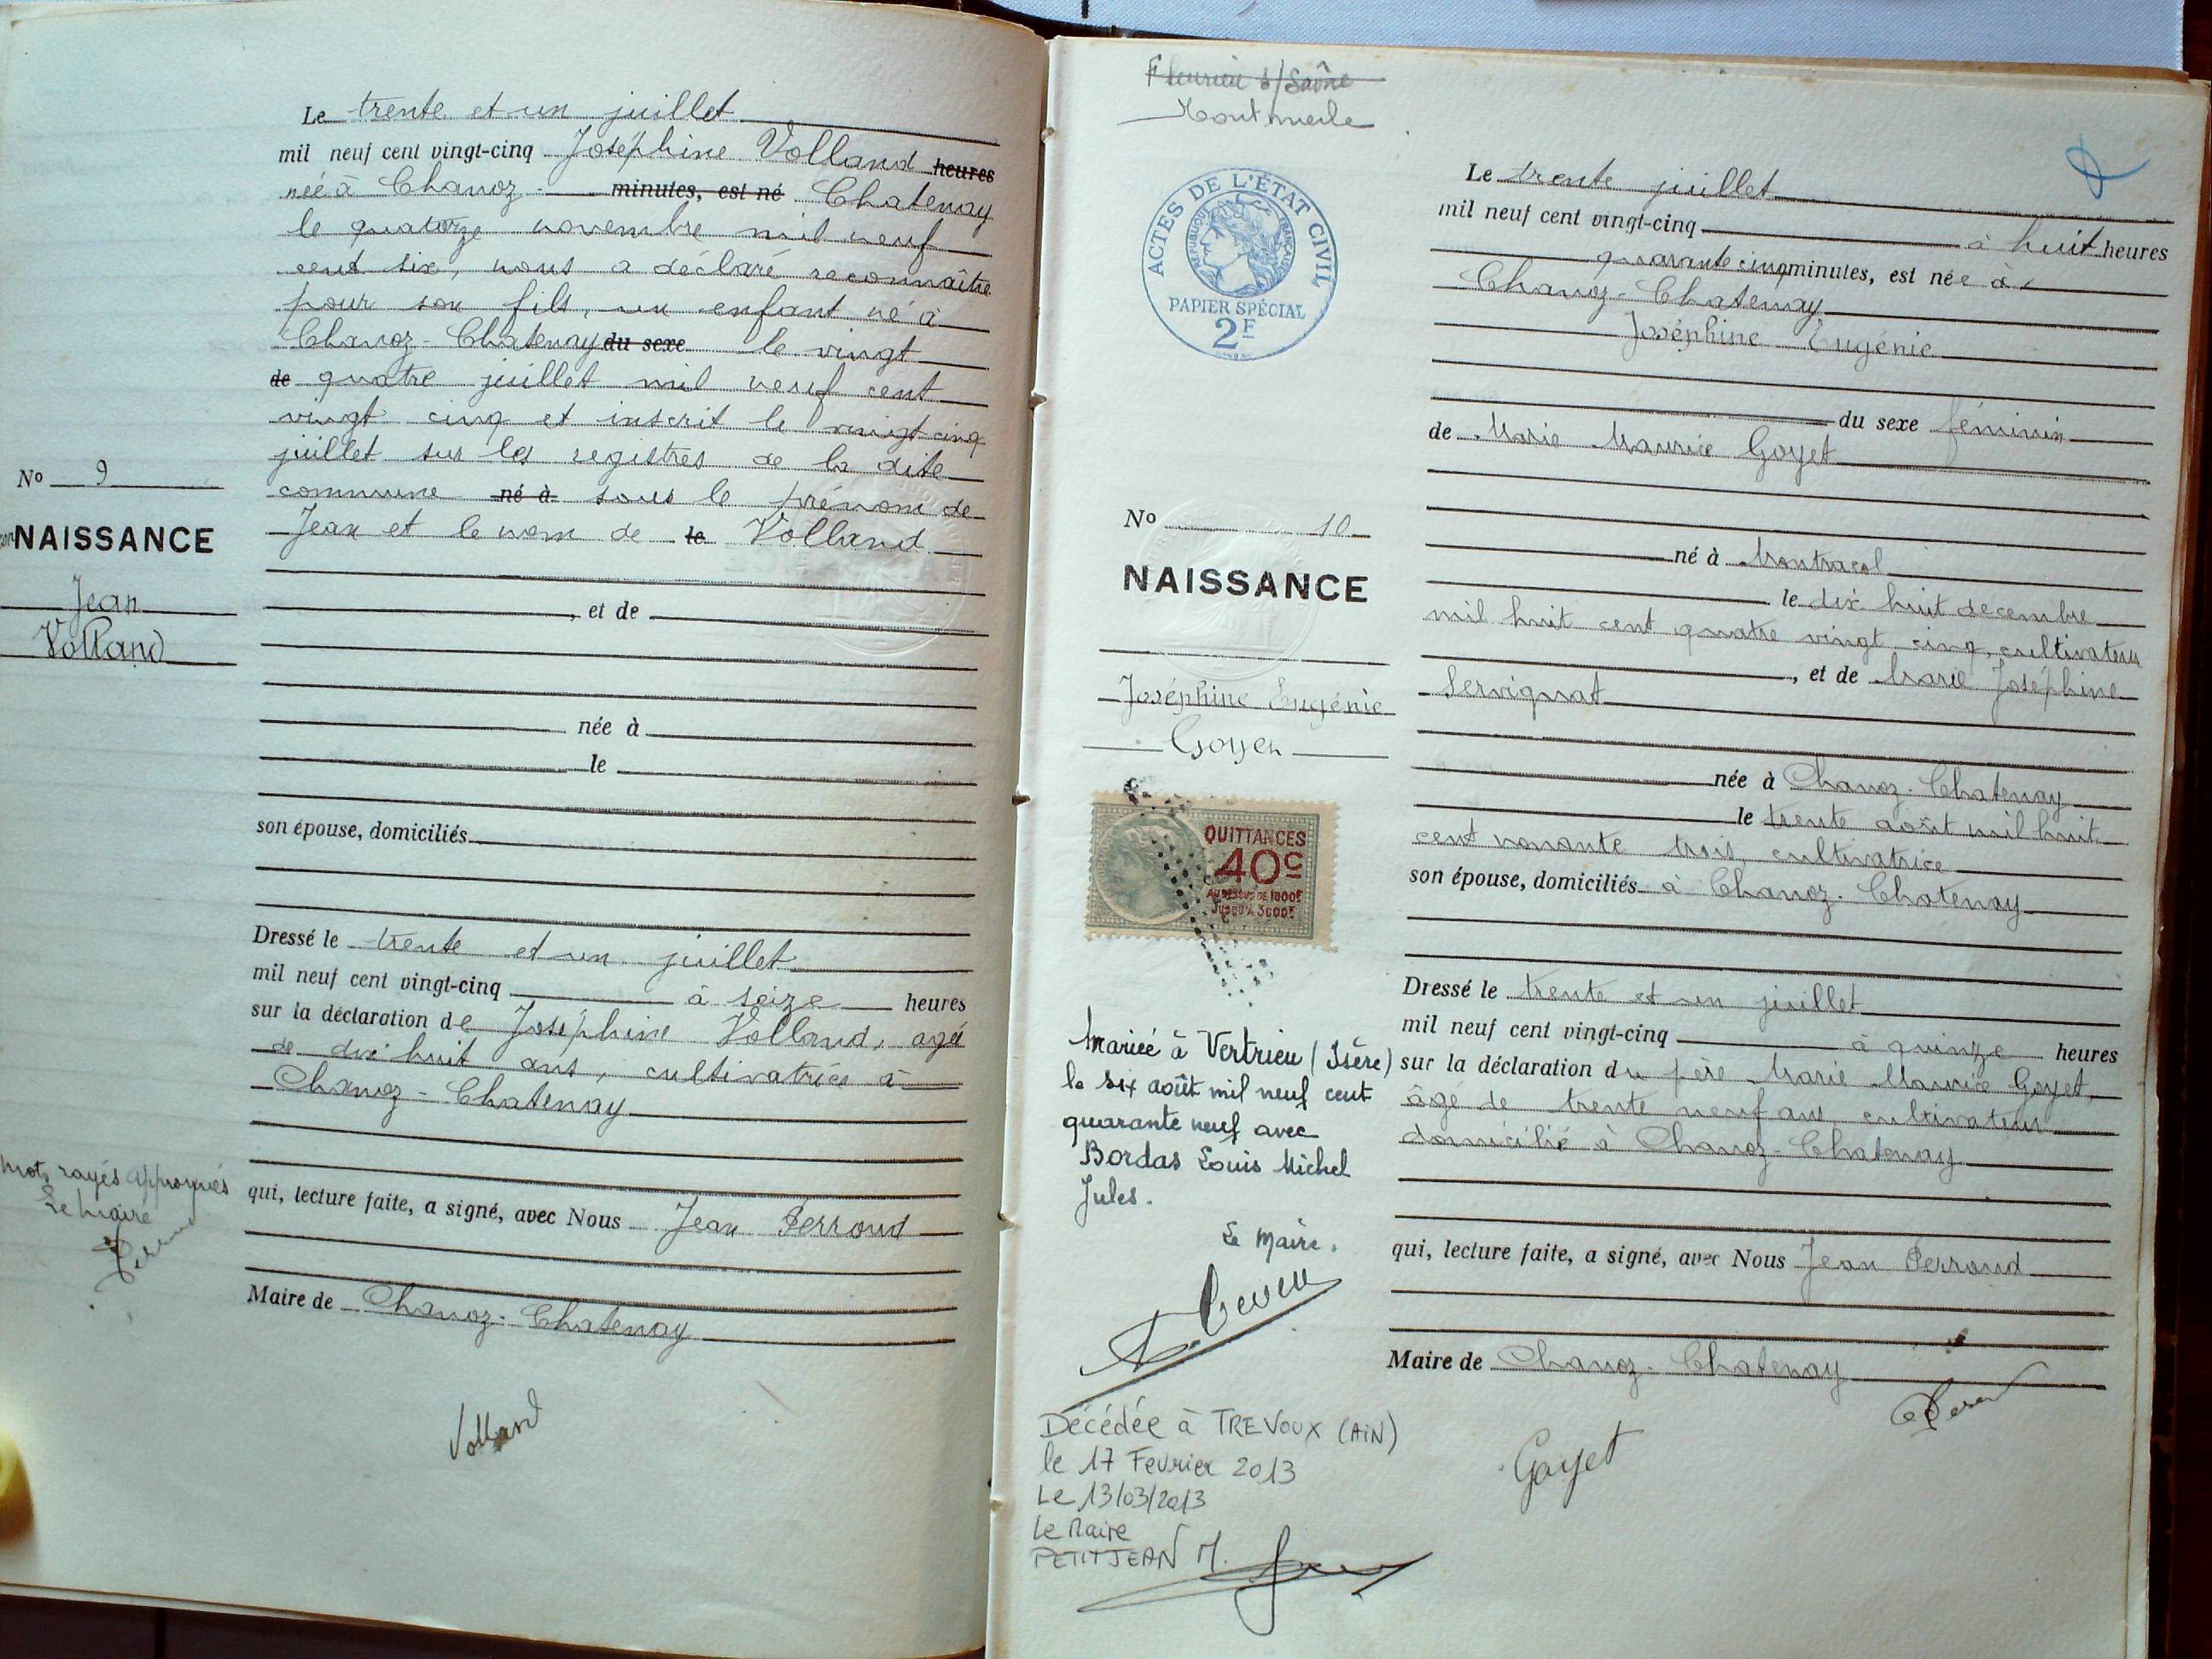 Le trente et un juillet
mil neuf cent vingt-cinq Joséphine Volland heures
née à Chanoz - minutes, est né Chatenay
le quatorze novembre mil neuf
cent six, nous a déclaré reconnaître
pour son fils, un enfant né à
Chanoz-Chatenay du sexe le vingt
de quatre juillet mil neuf cent
vingt cinq et inscrit le vingt-cinq
juillet sur les registres de la dite
commune né à sous le prénom de
Jean et le nom de le Volland
, et de
née à
le
son épouse, domiciliés
Dressé le trente et un juillet
mil neuf cent vingt-cinq à seize heures
sur la déclaration de Joséphine Volland, agée
de dix huit ans, cultivatrice à
Chanoz-Chatenay
qui, lecture faite, a signé, avec Nous Jean Perroud
Maire de Chanoz-Chatenay
Volland
No 9
NAISSANCE
Jean
Volland
Mots rayés approuvés
Le Maire
Fleurieu s/Saône
Montmerle
ACTES DE L'ÉTAT CIVIL
RÉPUBLIQUE FRANÇAISE
PAPIER SPÉCIAL
2F
No 10
NAISSANCE
Joséphine Eugénie
Goyet
QUITTANCES
40c
AU DESSUS DE 1000F
JUSQU'À 3000F
Mariée à Vertrieu (Isère)
le six août mil neuf cent
quarante neuf avec
Bordas Louis Michel
Jules.
Le Maire.
Décédée à TREVOUX (AIN)
le 17 Fevrier 2013
Le 13/03/2013
Le Maire
PETITJEAN M.
Le trente juillet
mil neuf cent vingt-cinq à huit heures
quarante cinq minutes, est née à
Chanoz-Chatenay
Joséphine Eugénie
du sexe féminin
de Marie Maurice Goyet
né à Montracol
le dix huit decembre
mil huit cent quatre vingt cinq, cultivateur
, et de Marie Joséphine
Servignat
née à Chanoz-Chatenay
le trente août mil huit
cent nonante trois, cultivatrice
son épouse, domiciliés à Chanoz-Chatenay
Dressé le trente et un juillet
mil neuf cent vingt-cinq à quinze heures
sur la déclaration du père Marie Maurice Goyet,
âgé de trente neuf ans, cultivateur
domicilié à Chanoz-Chatenay
qui, lecture faite, a signé, avec Nous Jean Perroud
Maire de Chanoz-Chatenay
Goyet